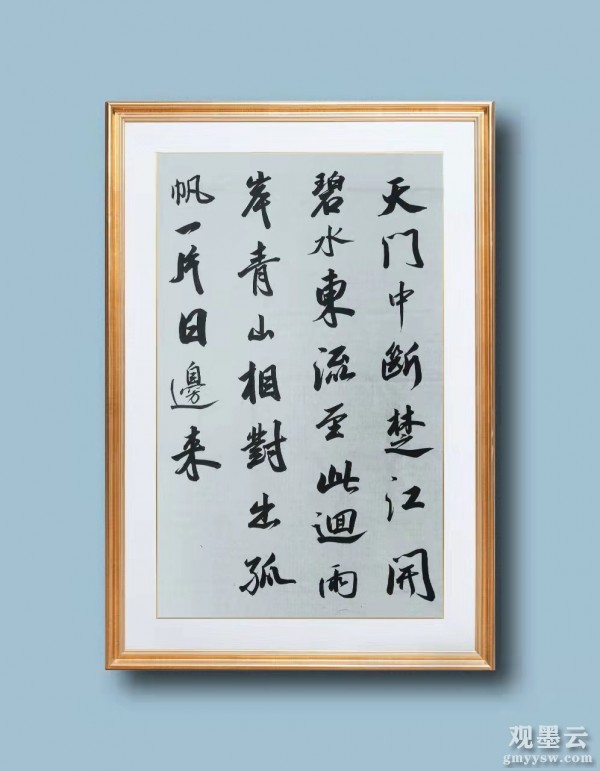 天门中断楚江開
碧水東流至此迴雨
岸青山相對出孤
帆一片日邊来
观墨云
gmyysw.com